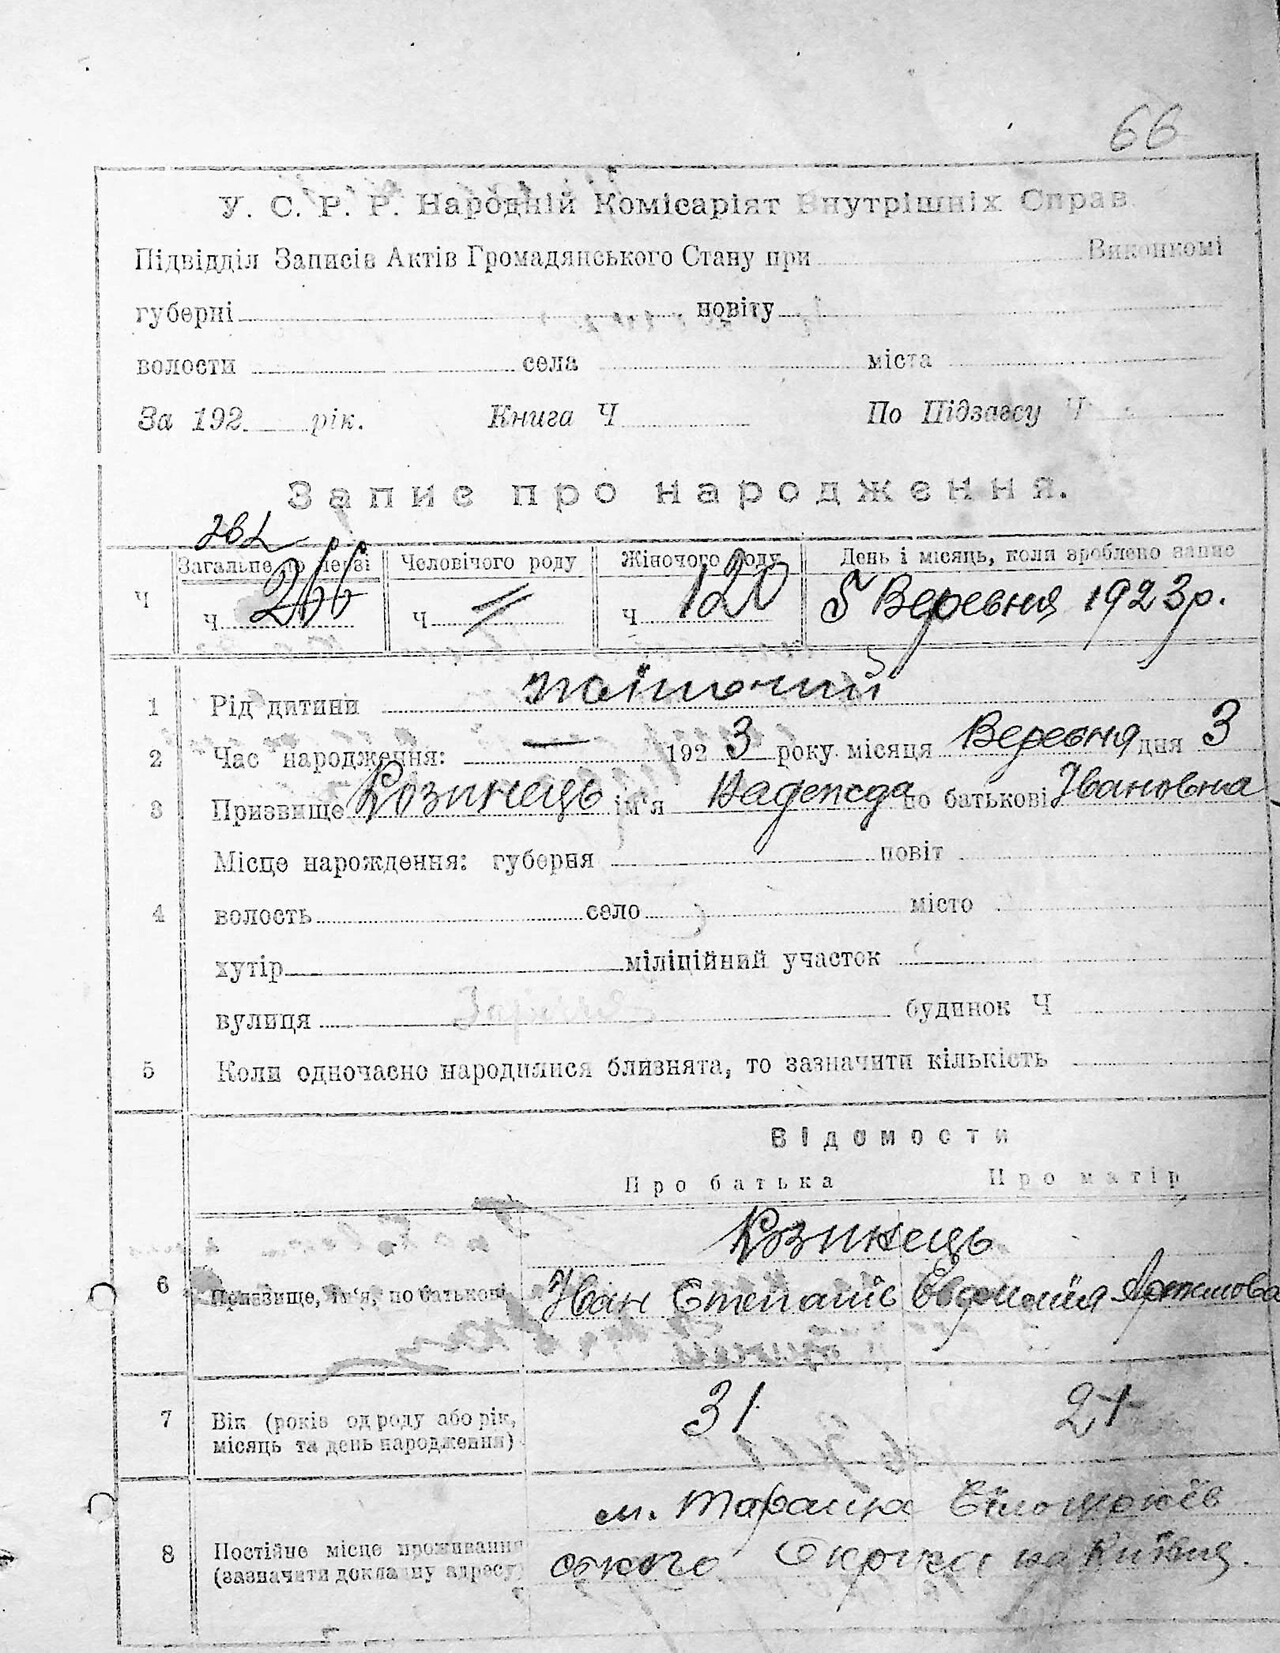 66
У. С. Р. Р. Народній Комісаріят Внутрішніх Справ.
Підвідділ Записів Актів Громадянського Стану при Виконкомі
губерні повіту
волости села міста
За 192 рік. Книга Ч По Підзагсу Ч
Запис про народження.
Загальне по черзі Человічого роду Жіночого роду День і місяць, коли зроблено запис
Ч Ч 266 Ч Ч 120 5 Вересня 1923 р.
1 Рід дитини жіночий
2 Час народження: — 1923 року місяця Вересня дня 3
3 Призвище Козинець ім'я Надежда по батькові Івановна
Місце народження: губерня повіт
4 волость село місто
хутір міліційний участок
вулиця будинок Ч
5 Коли одночасно народилися близнята, то зазначити кількість
Відомости
Про батька Про матір
Козинець
6 Призвище, ім'я, по батькові Іван Степанів Евдокія Артемова
7 Вік (років од роду або рік, місяць та день народження) 31 21
м. Тараща Білоцерків
8 Постійне місце проживання (зазначити докладну адресу) ського Округи на Київщ.